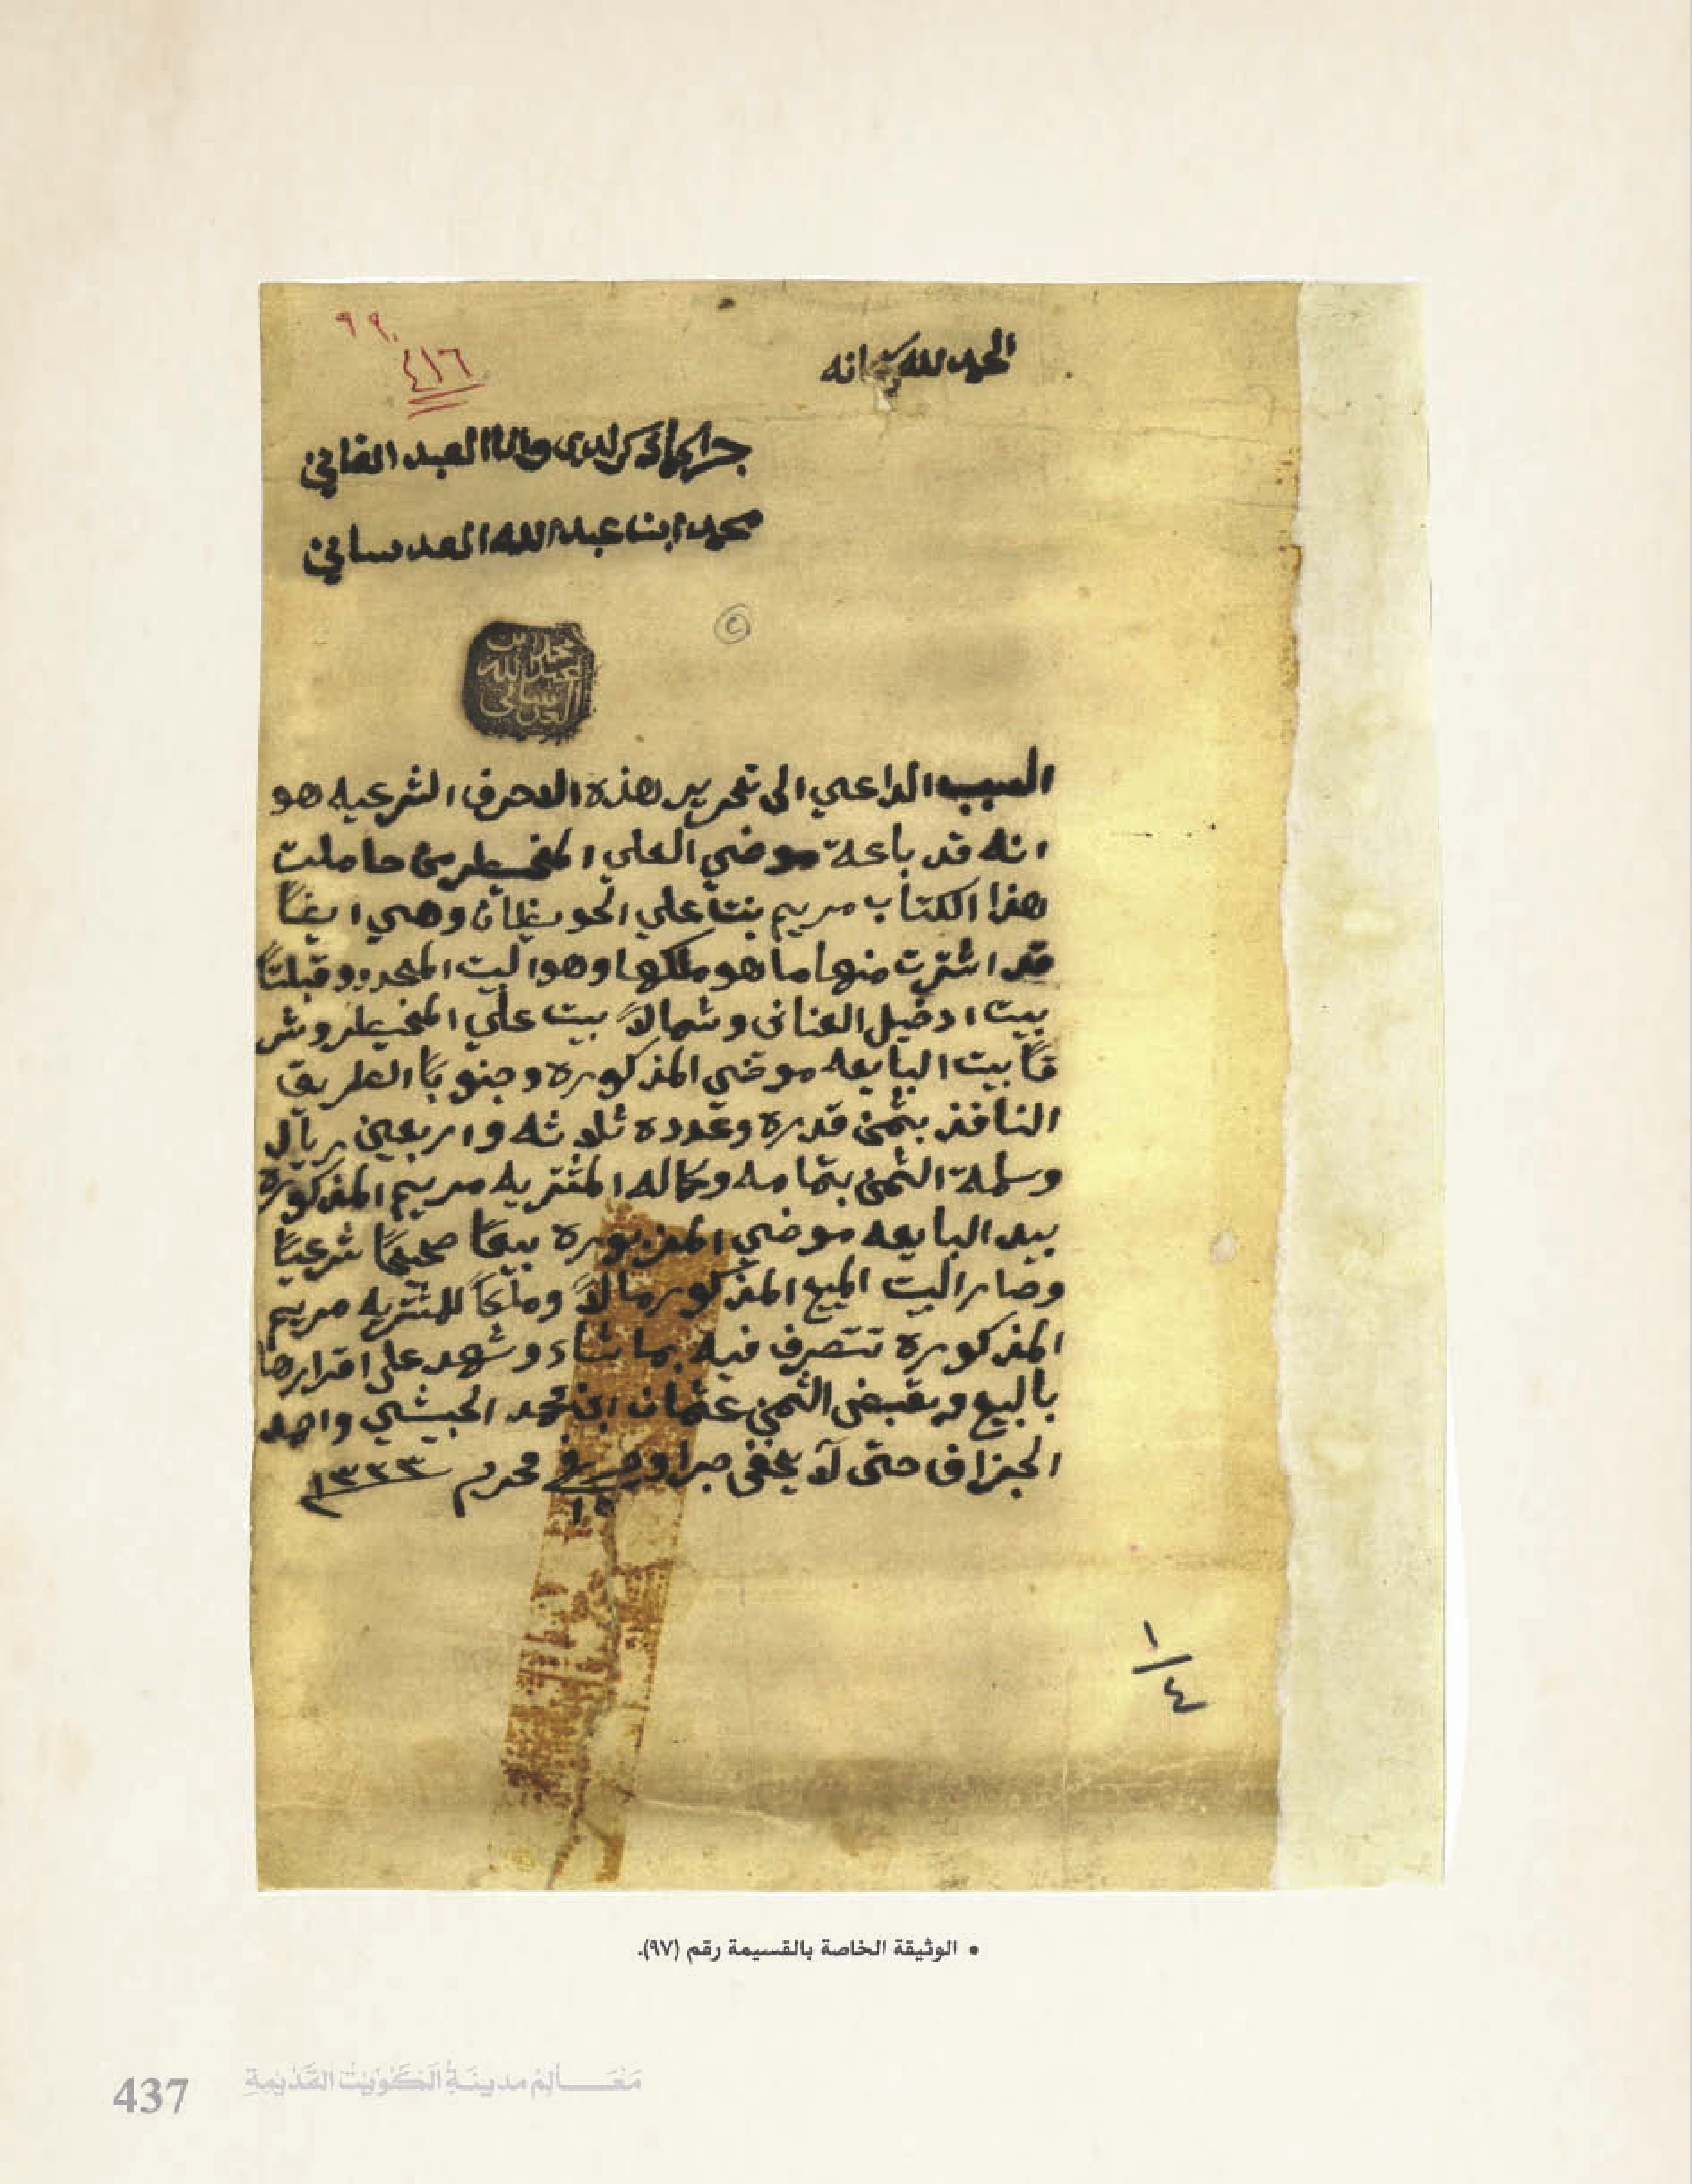 الحمد لله سبحانه
٩٩٠
٤١٦
جرا كما ذكر لدي وانا العبد الفاني
محمد ابن عبدالله العدساني
محمد بن
عبدالله
العدساني
السبب الداعي الى تحرير هذه الاحرف الشرعيه هو
انه قد باعة موضي العلي المخيطر من حاملت
هذا الكتاب مريم بنت علي الحويظان وهي ايضاً
قد اشترت منها ما هو ملكها وهو البيت المحدود قبلتاً
بيت ادخيل العناني وشمالاً بيت علي المخيطر وشر
قاً بيت البايعه موضي المذكوره وجنوباً الطريق
النافذ بثمن قدره وعدده ثلاثه واربعين ريال
وسلمة الثمن بتمامه وكماله المشتريه مريم المذكوره
بيد البايعه موضي المزبوره بيعاً صحيحاً شرعياً
وصار البيت المبيع المذكور مالاً وملكاً للمشتريه مريم
المذكوره تتصرف فيه بما شاء وشهد على اقرارها
بالبيع وبقبض الثمن عثمان ابن محمد الحبيشي واحمد
الجزاف حتى لا يخفى جرا وحرر في ١٥ محرم ١٣٣٣
١/٤
• الوثيقة الخاصة بالقسيمة رقم (٩٧).
437 مَعَالِم مدينَة الكُوَيْت القَدِيمَة